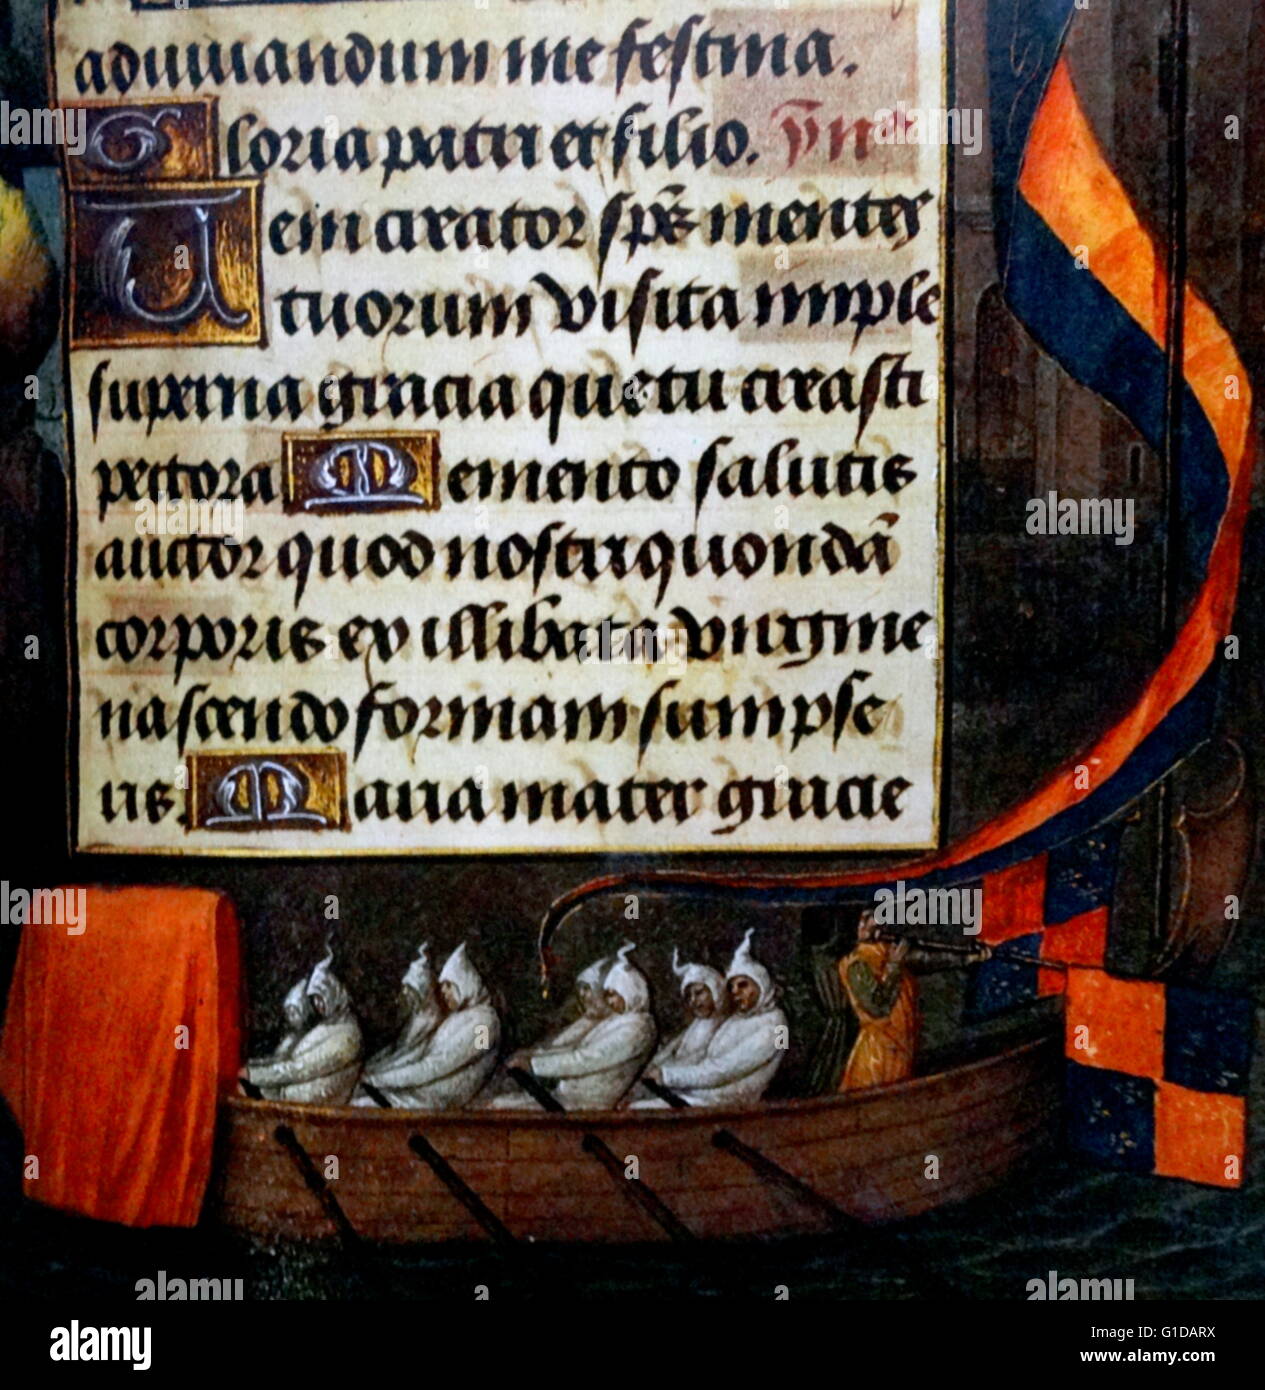 adiuuandum me festina.
Gloria patri et filio. ẏmꝰ
Ueni creator sp̄s mentes
tuorum visita imple
superna gracia que tu creasti
pectora Memento salutis
auctor quod nostri quondā
corporis ex illibata virgine
nascendo formam sumpse
ris. Maria mater gracie
alamy
Image ID: G1DARX
www.alamy.com